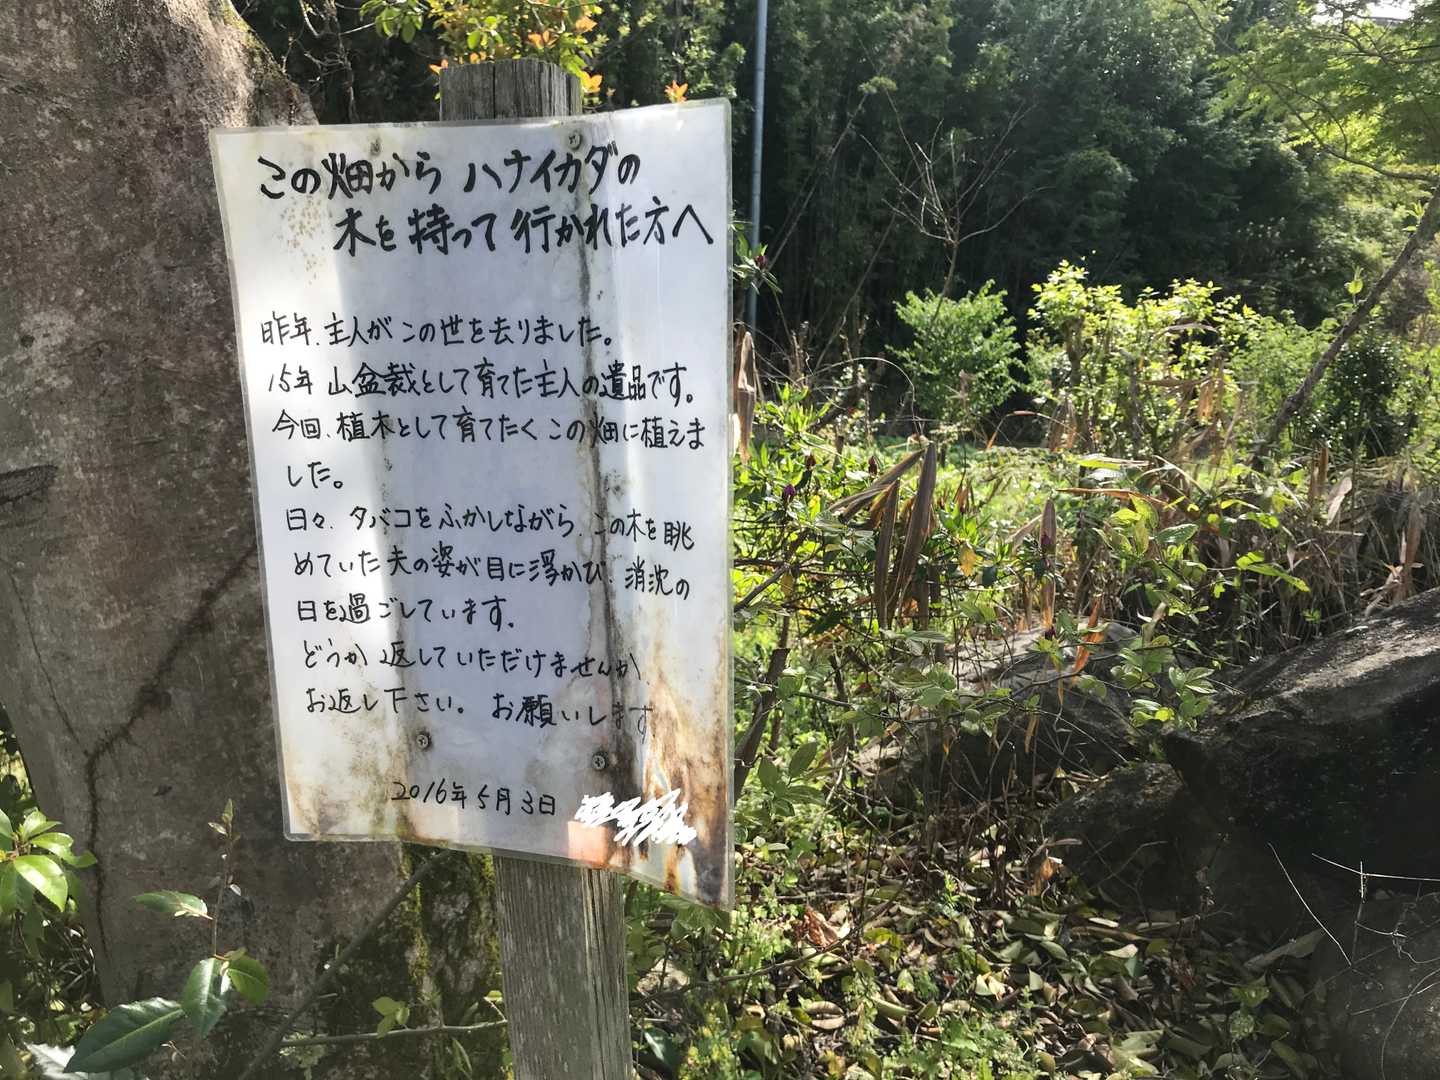 この畑から ハナイカダの
木を持って行かれた方へ
昨年、主人がこの世を去りました。
15年 山盆裁として育てた主人の遺品です。
今回、植木として育てたくこの畑に植えま
した。
日々、タバコをふかしながら、この木を眺
めていた夫の姿が目に浮かび、消沈の
日を過ごしています。
どうか返していただけませんか、
お返し下さい。 お願いします
2016年5月3日